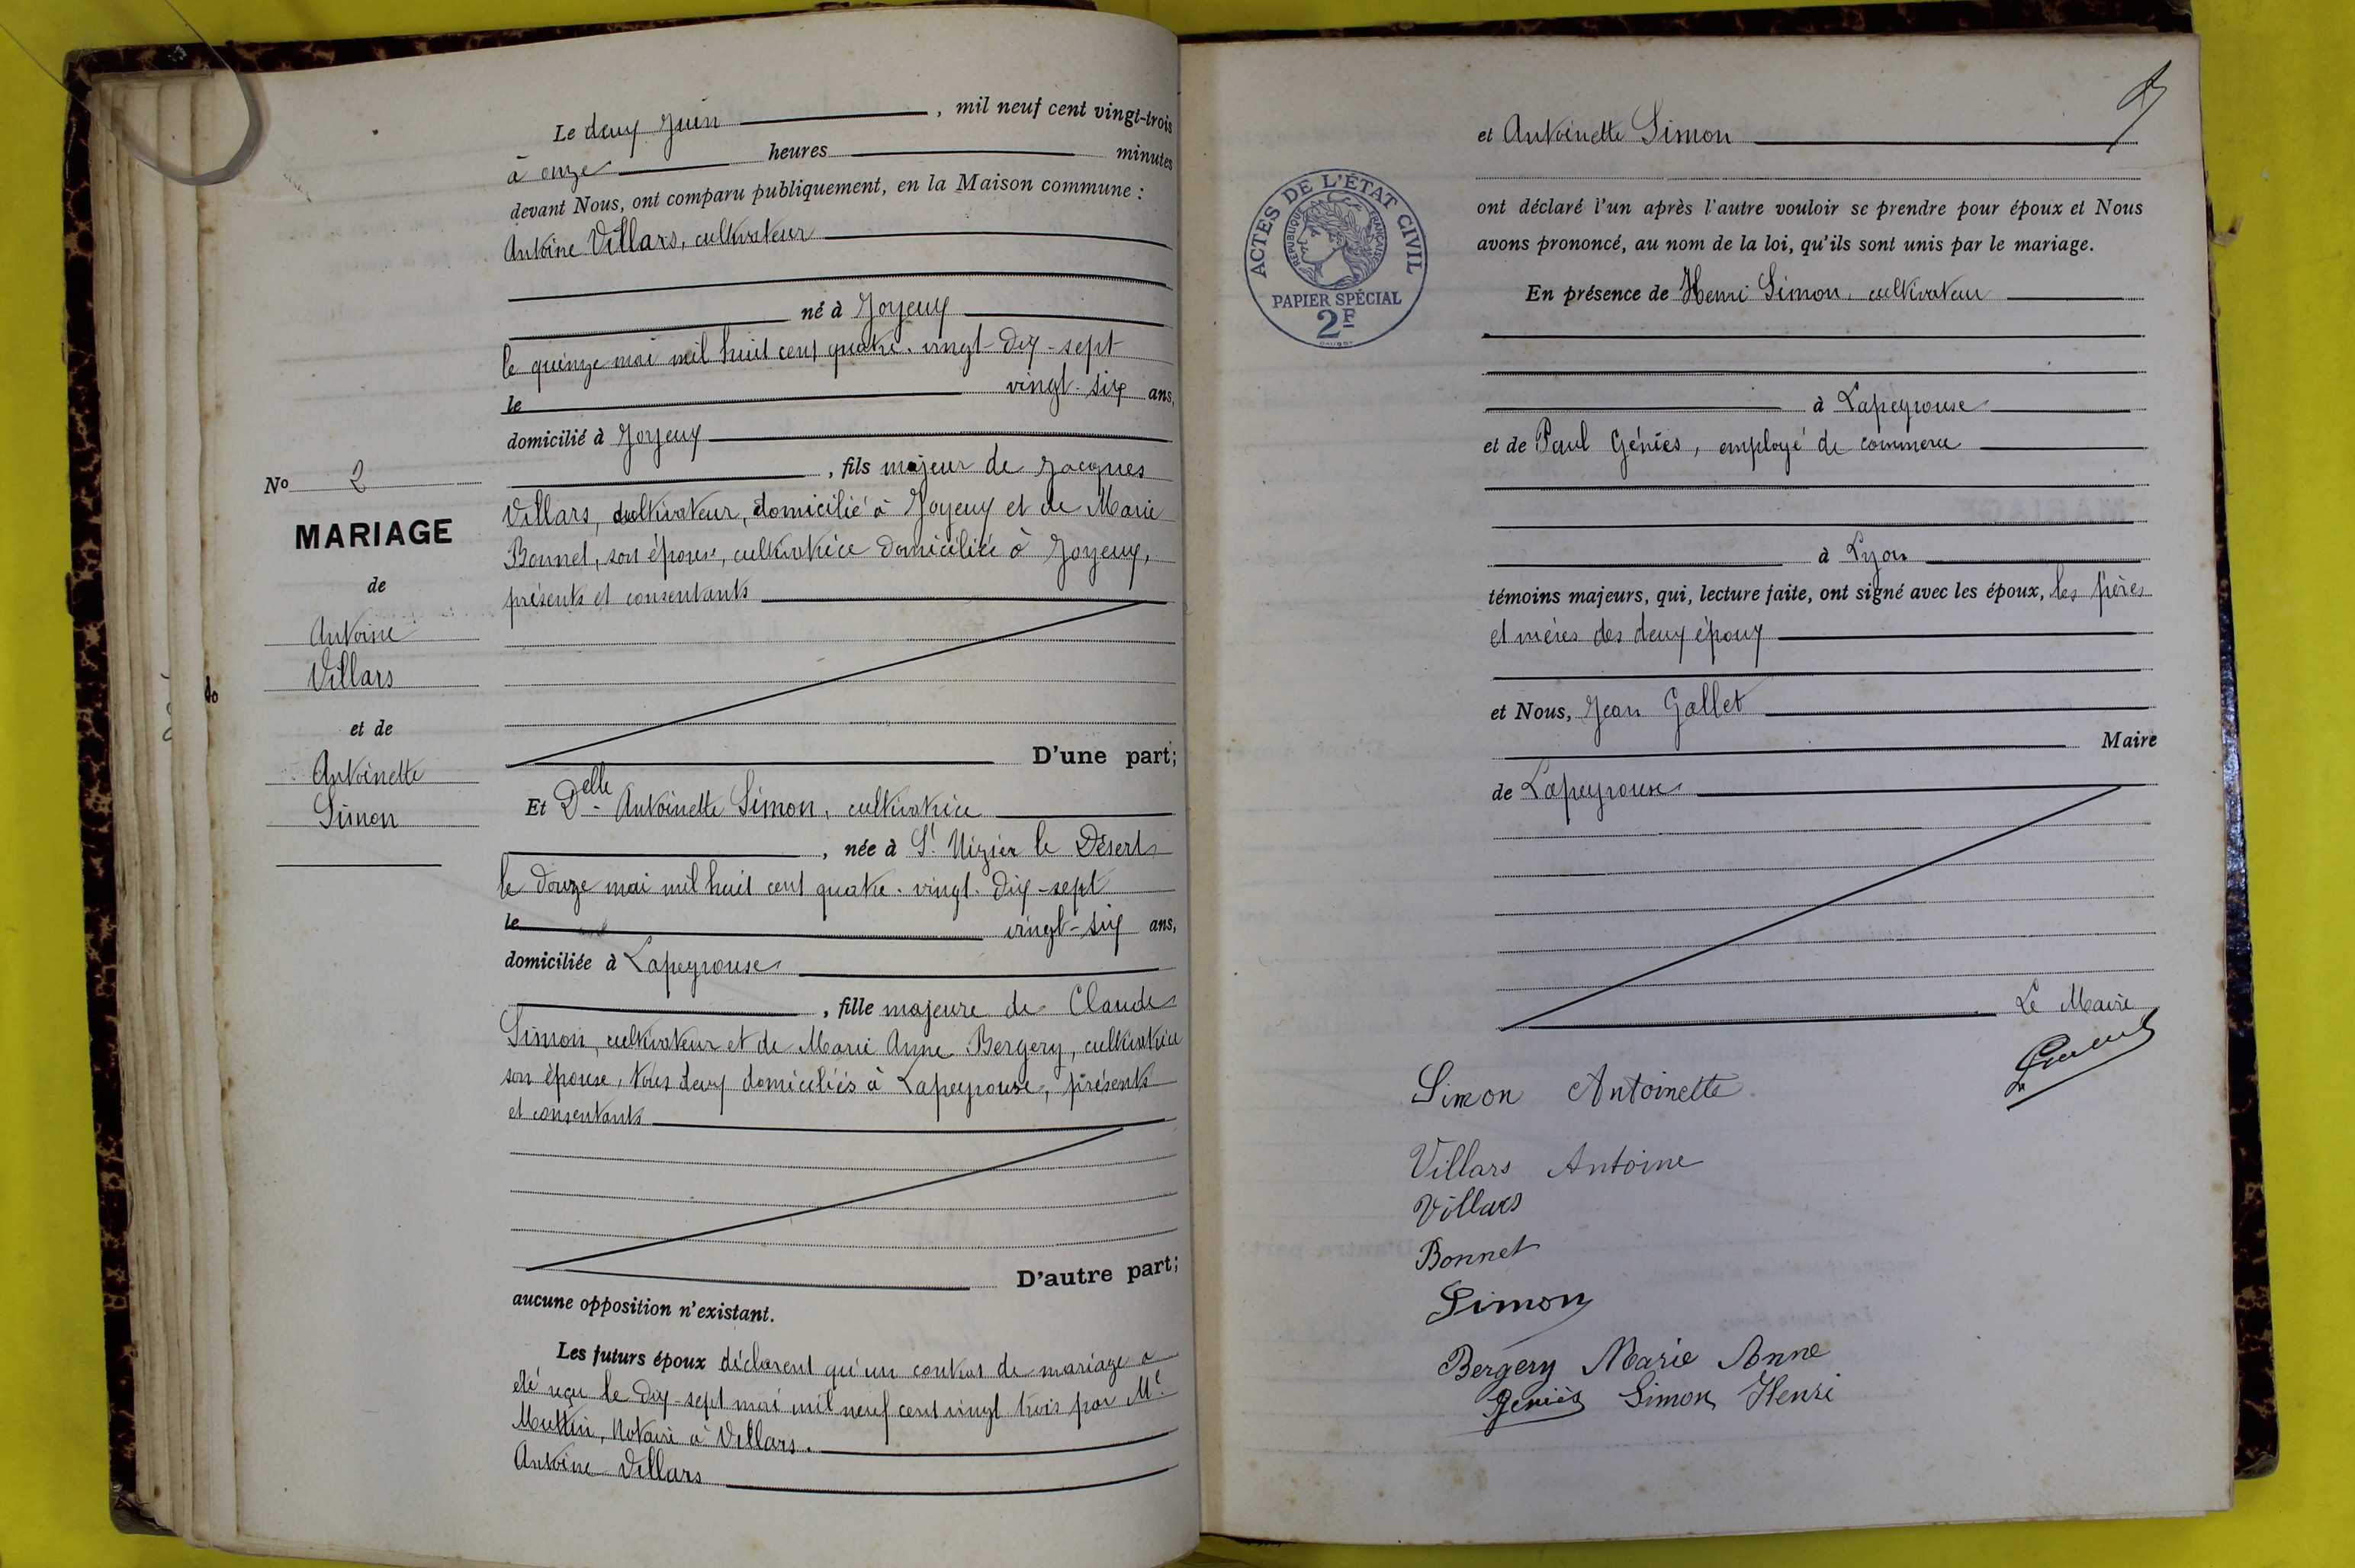 Le deux Juin , mil neuf cent vingt-trois
à onze heures minutes
devant Nous, ont comparu publiquement, en la Maison commune :
Antoine Villars, cultivateur
né à Joyeux
le quinze mai mil huit cent quatre-vingt-dix-sept
le vingt-six ans,
domicilié à Joyeux
, fils majeur de Jacques
Villars, cultivateur, domicilié à Joyeux et de Marie
Bonnet, son épouse, cultivatrice domiciliée à Joyeux,
présents et consentants
D'une part;
No 2
MARIAGE
de
Antoine
Villars
et de
Antoinette
Simon
Et Delle Antoinette Simon, cultivatrice
, née à St Nizier le Désert
le douze mai mil huit cent quatre-vingt-dix-sept
le vingt-six ans,
domiciliée à Lapeyrouse
, fille majeure de Claude
Simon, cultivateur et de Marie Anne Bergery, cultivatrice
son épouse, tous deux domiciliés à Lapeyrouse, présents
et consentants
D'autre part;
aucune opposition n'existant.
Les futurs époux déclarent qu'un contrat de mariage a
été reçu le dix-sept mai mil neuf cent vingt trois par Me
Notaire à Villars.
Antoine Villars
et Antoinette Simon
ont déclaré l'un après l'autre vouloir se prendre pour époux et Nous
avons prononcé, au nom de la loi, qu'ils sont unis par le mariage.
ACTES DE L'ÉTAT CIVIL
RÉPUBLIQUE FRANÇAISE
PAPIER SPÉCIAL
2F
En présence de Henri Simon, cultivateur
à Lapeyrouse
et de Paul Géniès, employé de commerce
à Lyon
témoins majeurs, qui, lecture faite, ont signé avec les époux, les pères
et mères des deux époux
et Nous, Jean Gallet
Maire
de Lapeyrouse
Le Maire
Simon Antoinette
Villars Antoine
Villars
Bonnet
Simon
Bergery Marie Anne
Géniès Simon Henri